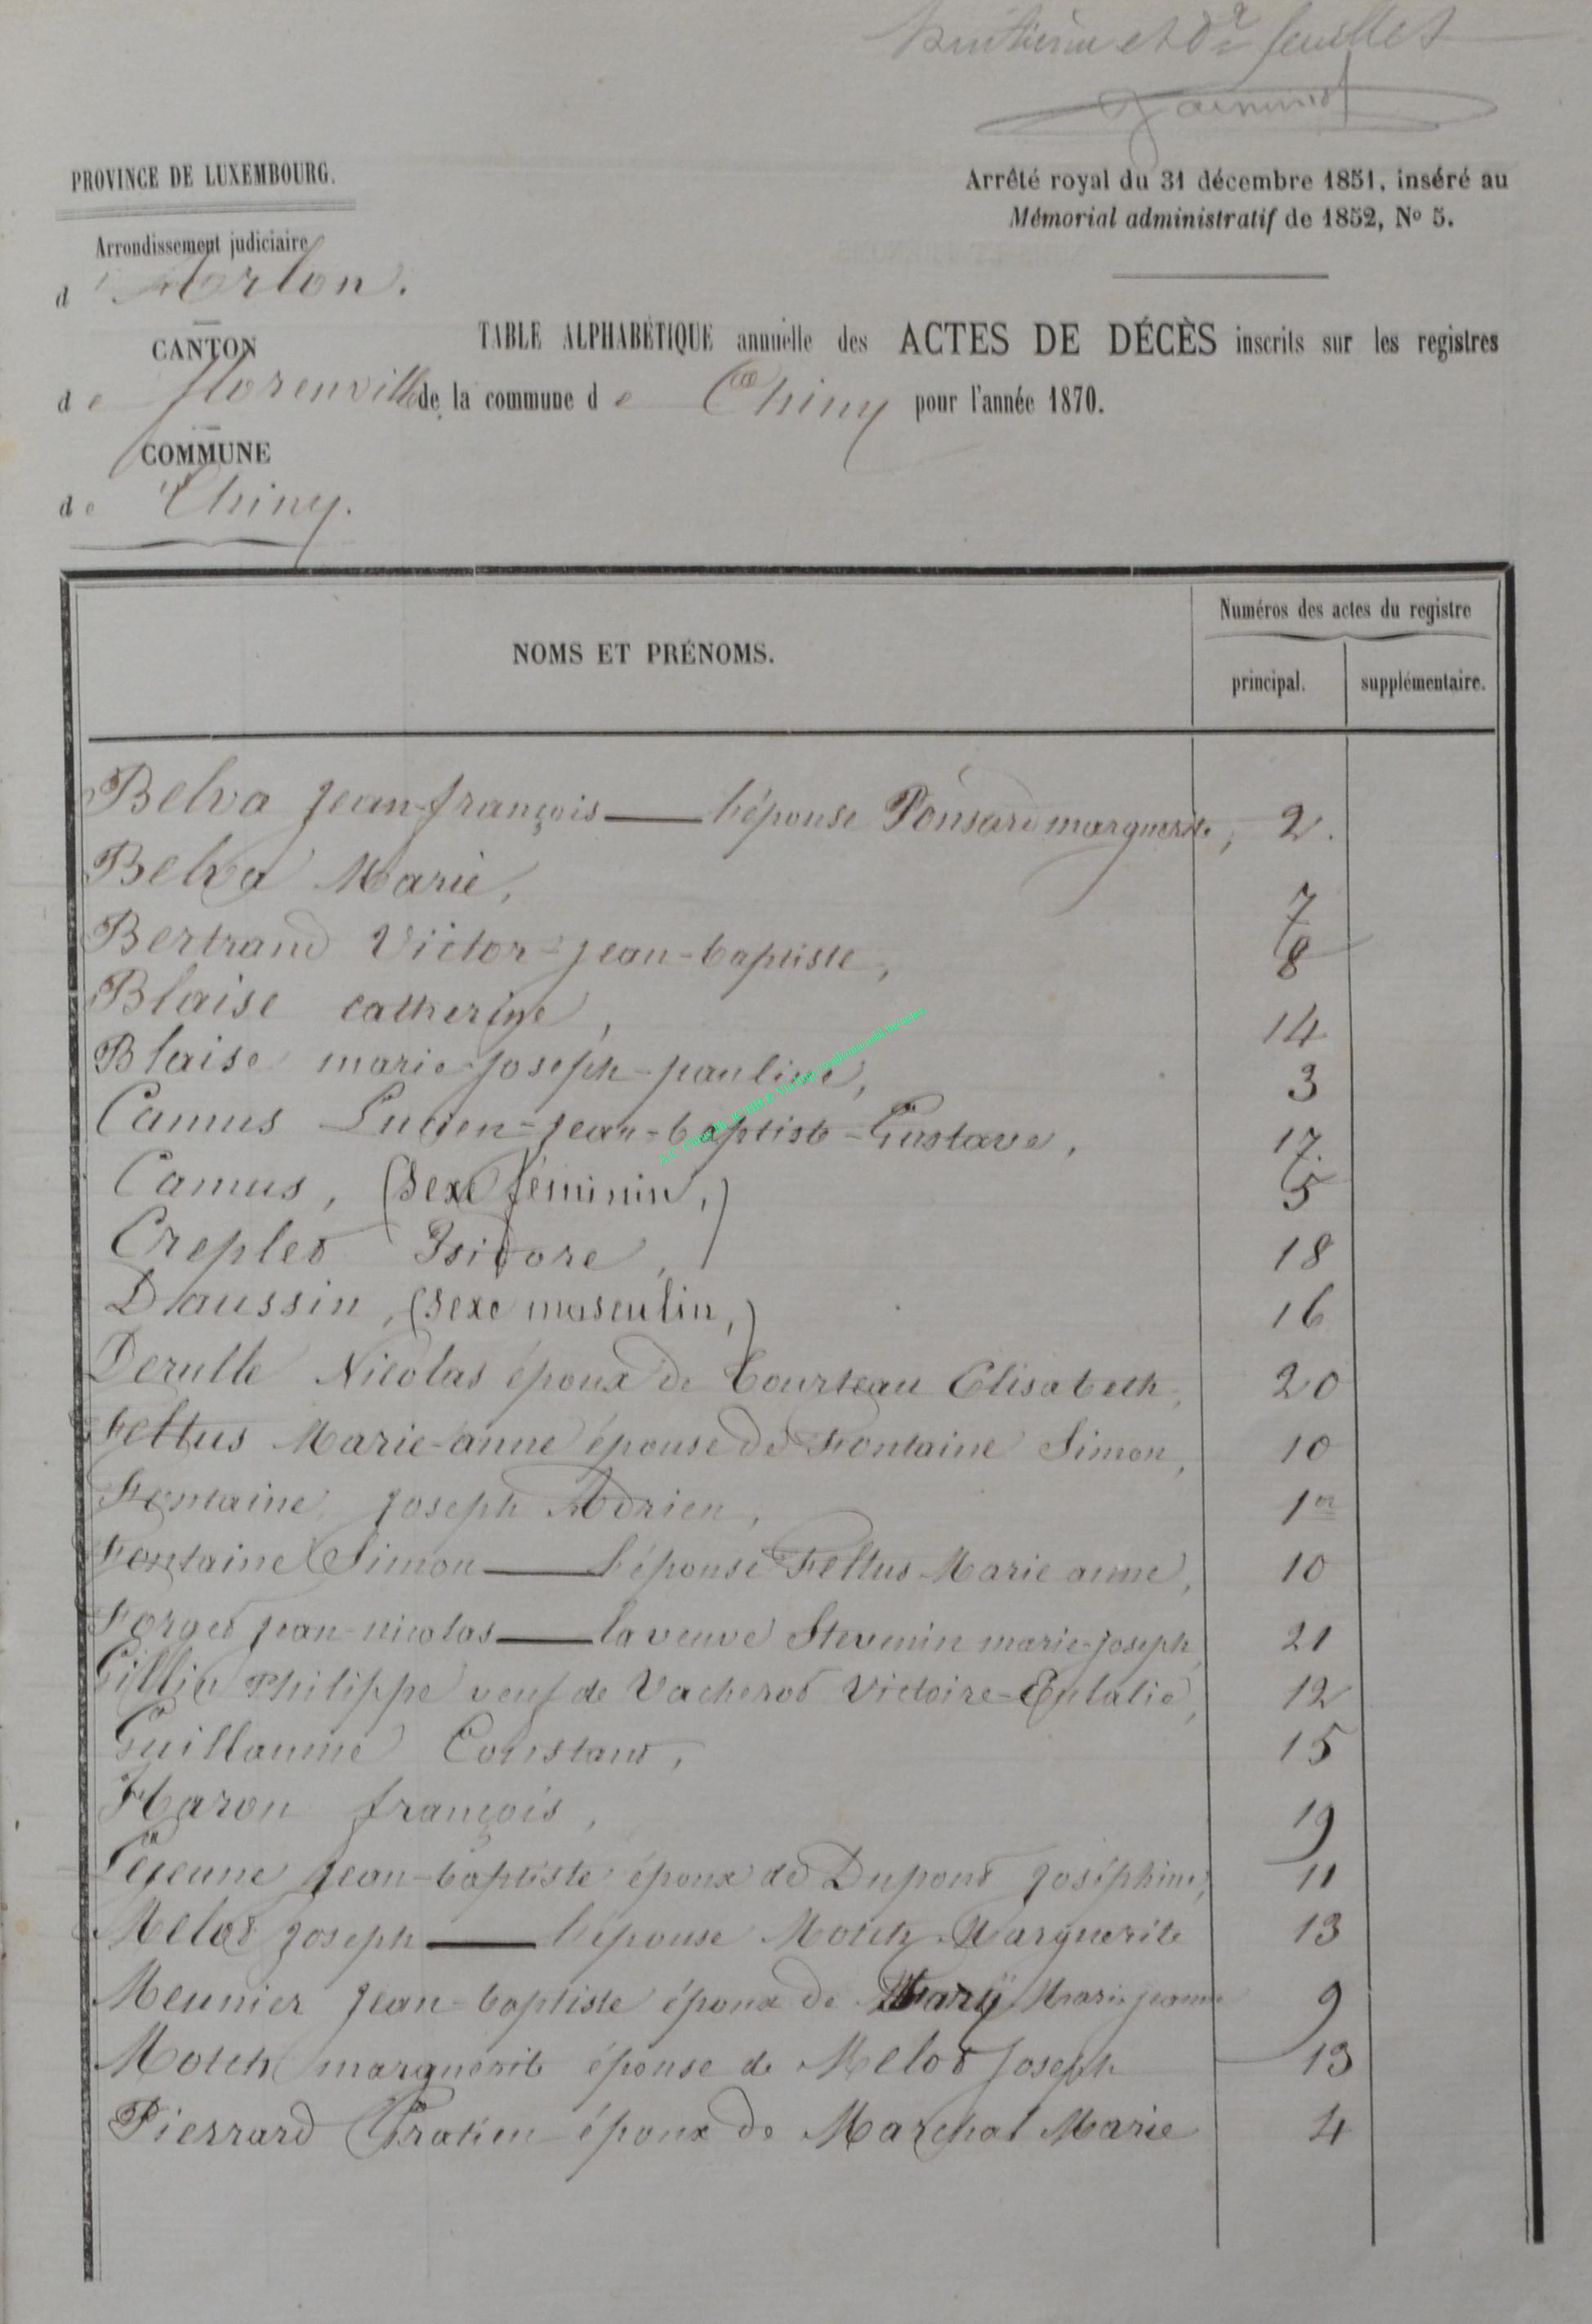 huitième et dr feuillet
PROVINCE DE LUXEMBOURG.
Arrêté royal du 31 décembre 1851, inséré au
Mémorial administratif de 1852, No 5.
Arrondissement judiciaire
d'Arlon.
CANTON
de Florenville
TABLE ALPHABÉTIQUE annuelle des ACTES DE DÉCÈS inscrits sur les registres
de la commune de Chiny pour l'année 1870.
COMMUNE
de Chiny.
NOMS ET PRÉNOMS.
Numéros des actes du registre
principal. supplémentaire.
Belva jean-françois — l'épouse Ponsard marguerite, 2.
Belva Marie, 7
Bertrand Victor-jean-baptiste, 8
Blaise catherine, 14
Blaise marie-joseph-pauline, 3
Camus Lucien-jean-baptiste-Gustave, 17.
Camus, (sexe féminin,) 5
Creplet Isidore, 18
Daussin, (sexe masculin,) 16
Derulle Nicolas époux de Tourteau Elisabeth, 20
Feltus Marie-anne épouse de Fontaine Simon, 10
Fontaine joseph Adrien, 1er
Fontaine Simon — l'épouse Feltus Marie anne, 10
Forget jean-nicolas — la veuve Stevenin marie-joseph, 21
Gillin Philippe veuf de Vacherot Victoire-Eulalie, 12
Guillaume Constant, 15
Haron françois, 19
Lejeune jean-baptiste époux de Dupont joséphine, 11
Melot joseph — l'épouse Motch Marguerite 13
Meunier jean-baptiste époux de Mary Marie jeanne 9
Motch marguerite épouse de Melot Joseph 13
Pierrard Gratien époux de Marchal Marie 4